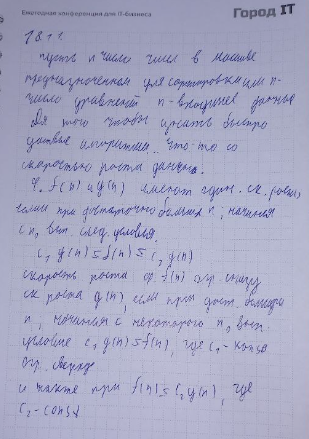 Ежегодная конференция для IT-бизнеса
Город IT
пусть n число чисел в массиве
предназначенном для сортировки или n-
число уравнений n-входные данные
Для того чтобы искать быстро
алгоритм что-то со
скоростью роста данных.
f(n) и g(n) имеют один. ск. роста,
если при достаточно больших n, начиная
с n, вып. след. условия.
c₁ g(n) ≤ f(n) ≤ c₂ g(n)
скорость роста ф. f(n) огр. снизу
ск роста g(n), если при дост. больших
n, начиная с некоторого n, вып.
условие c₁ g(n) ≤ f(n), где c₁ - конст
огр. сверху
и также при f(n) ≤ c₂ g(n), где
c₂ - const